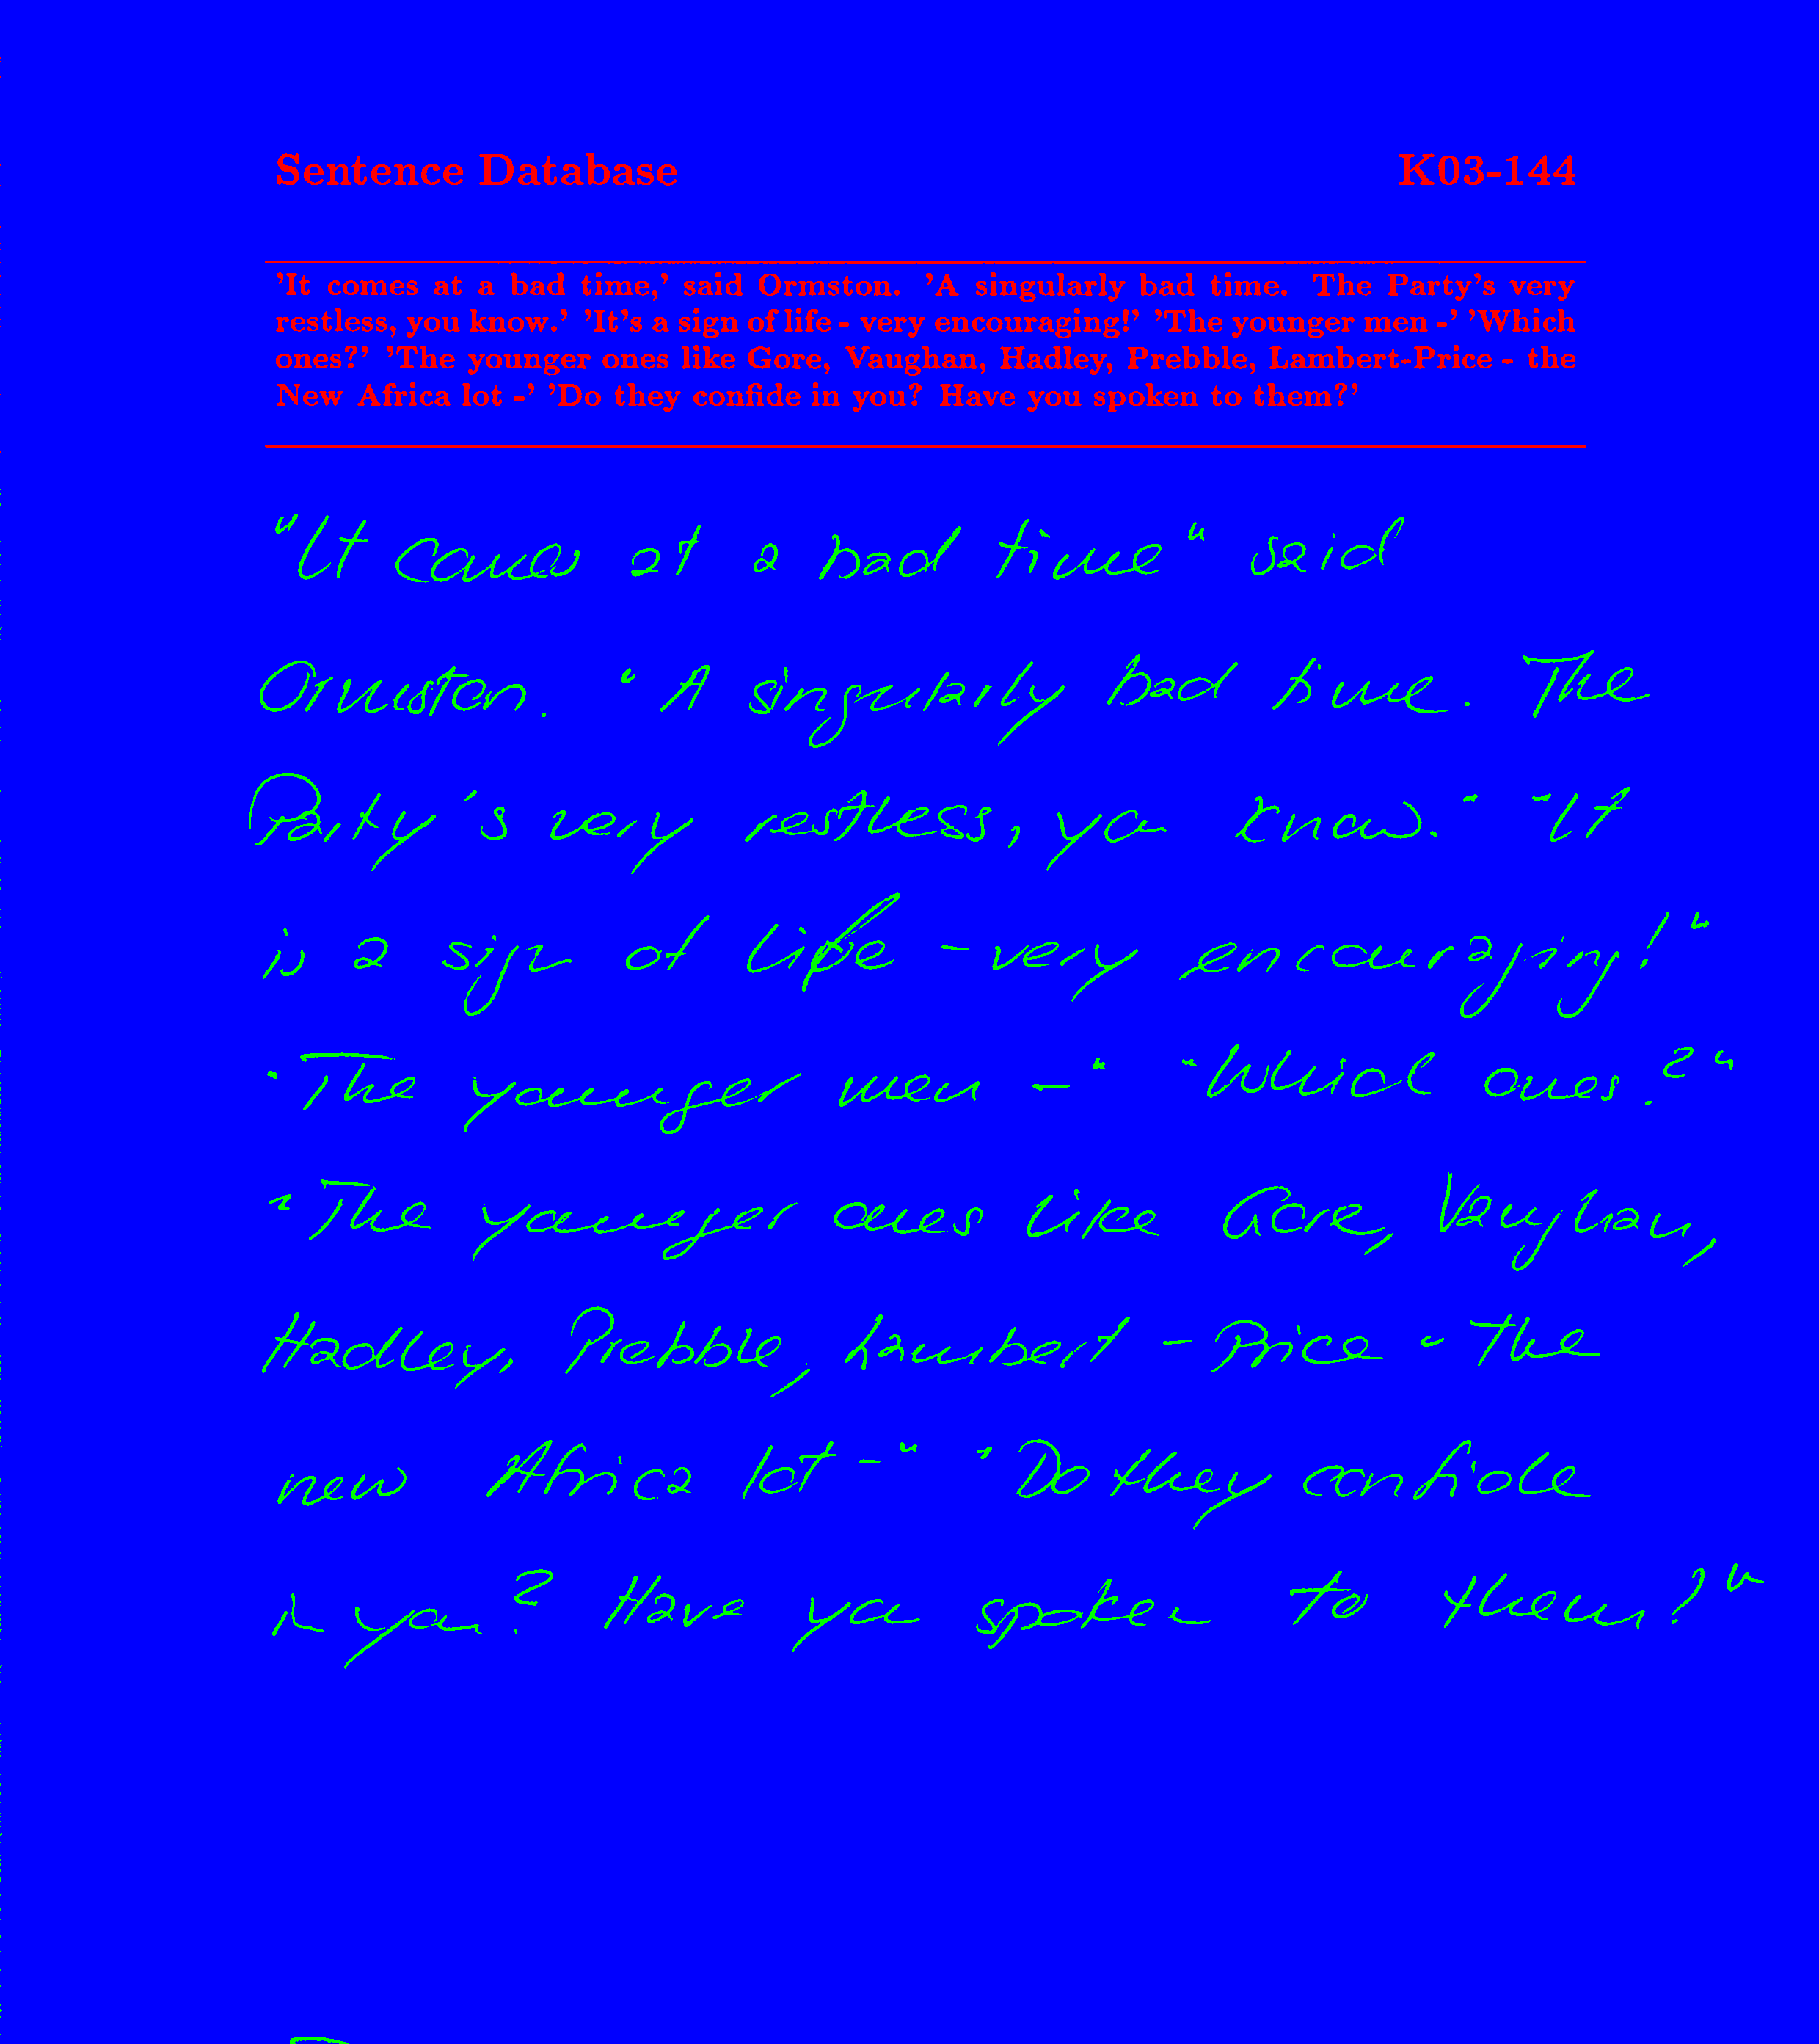 Sentence Database K03-144
'It comes at a bad time,' said Ormston. 'A singularly bad time. The Party's very
restless, you know.' 'It's a sign of life - very encouraging!' 'The younger men -' 'Which
ones?' 'The younger ones like Gore, Vaughan, Hadley, Prebble, Lambert-Price - the
New Africa lot -' 'Do they confide in you? Have you spoken to them?'
"It comes at a bad time" said
Ormston. "A singularly bad time. The
Party's very restless, you know." "It
is a sign of life - very encouraging!"
"The younger men -" "Which ones?"
"The younger ones like Gore, Vaughan,
Hadley, Prebble, Lambert - Price - The
new Africa lot -" "Do they confide
in you? Have you spoken to them?"